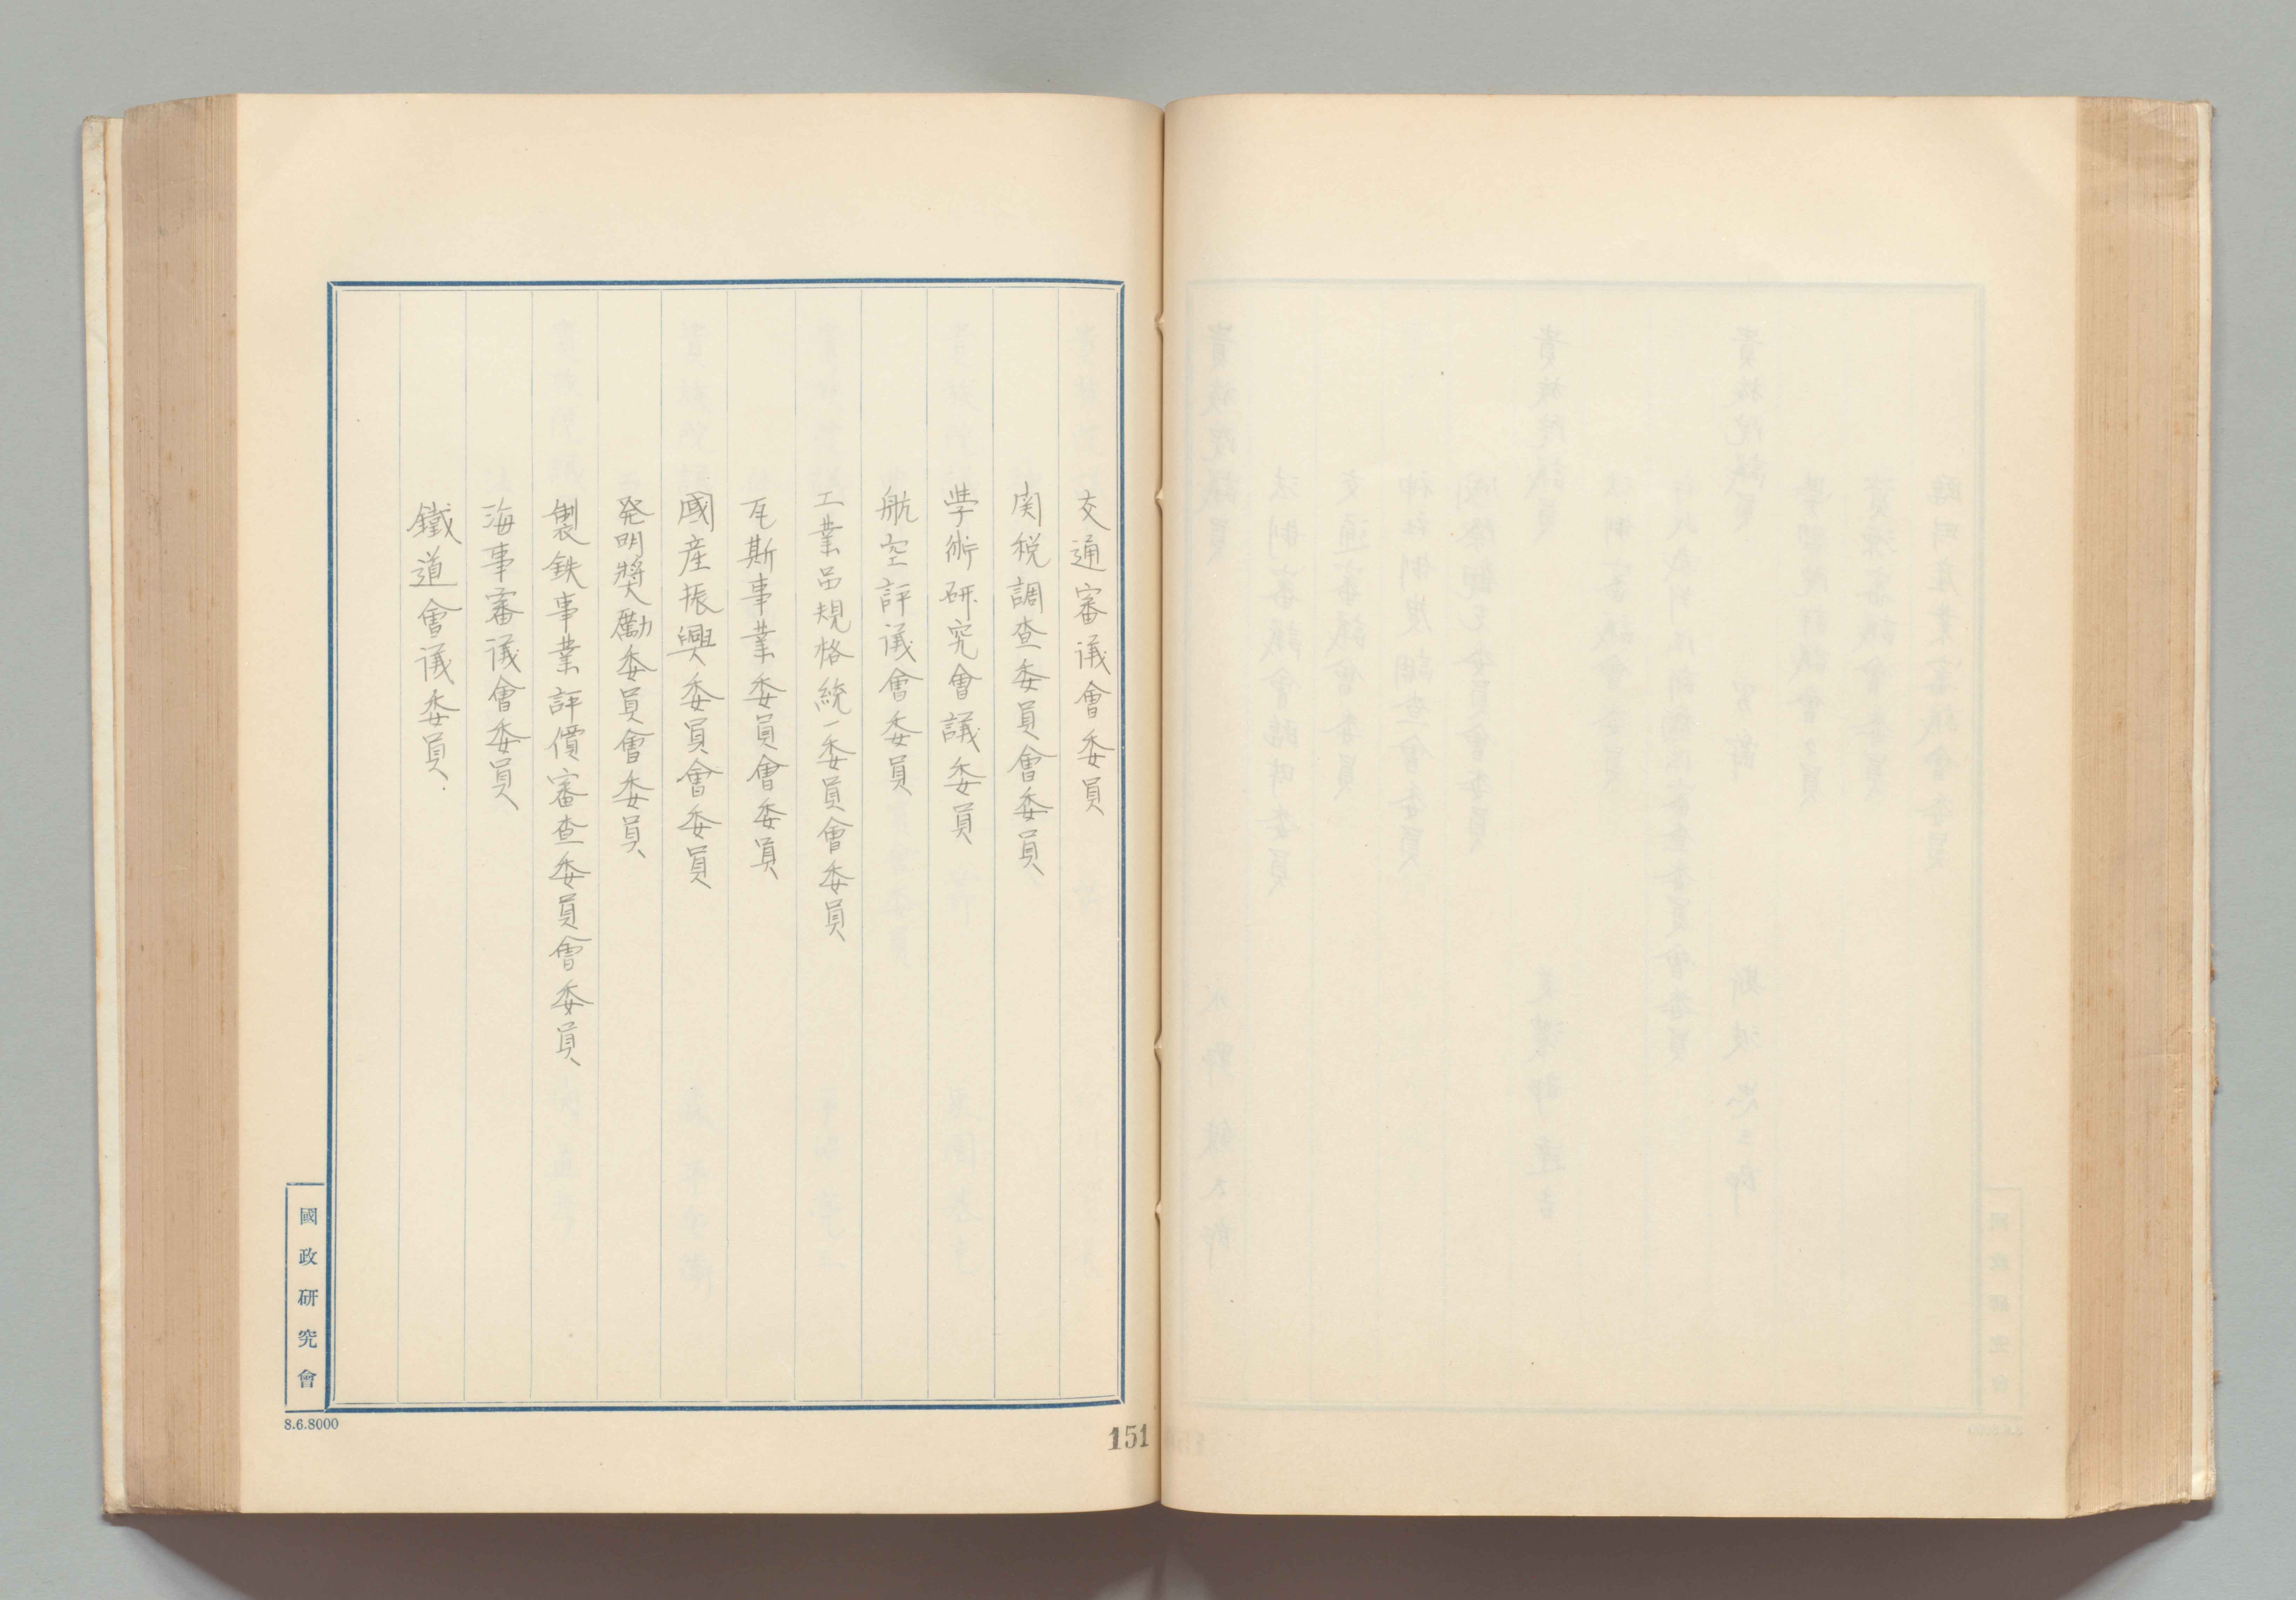 交通審议會委員
関税調査委員會委員
学術研究會議委員
航空評议會委員
工業品規格統一委員會委員
瓦斯事業委員會委員
國産振興委員會委員
発明奨励委員會委員
製鉄事業評價審査委員會委員
海事審议會委員
鐵道會议委員.
國政研究會
8.6.8000
151